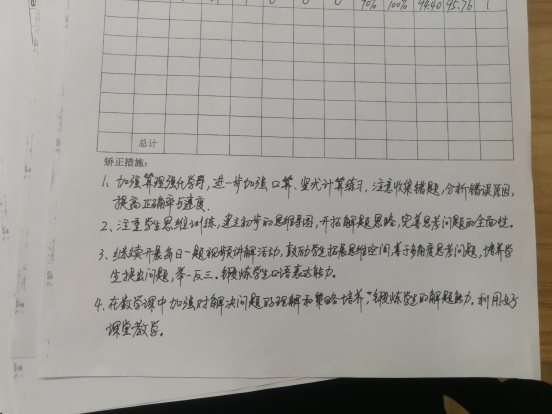 0 0 0 90% 100% 94.40 95.76 1
总计
矫正措施:
1、加强算理强化学导,进一步加强口算、竖式计算练习,注意收集错题,分析错误原因,
提高正确率与速度.
2、注重学生思维训练,建立初步的思维导图,开拓解题思路,完善思考问题的全面性.
3、继续开展每日一题视频讲解活动,鼓励学生拓展思维空间,善于多角度思考问题,培养学
生提出问题,举一反三.锻炼学生口语表达能力.
4、在数学课中加强对解决问题的理解和策略培养,锻炼学生的解题能力.利用好
课堂教学.